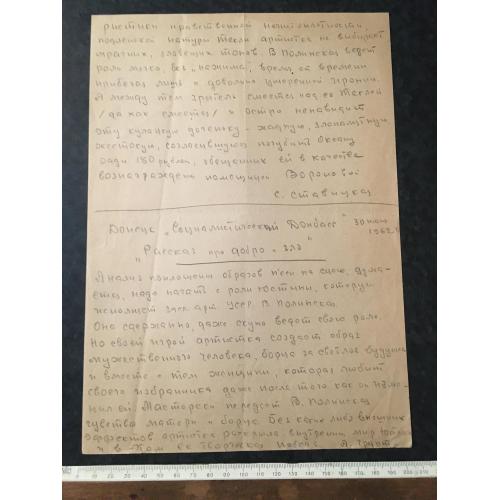 ристики нравственной нечистоплотности,
подленькой натуры Теклі артистка не выбирает
мрачных, зловещих тонов. В. Полинская ведет
роль мягко, без „нажима", время от времени
прибегая лишь к довольно умеренной иронии.
А между тем зритель смеется над ее Теклей
/да как смеется/ и остро ненавидит
эту кулацкую доченьку - жадную, злопамятную
жестокую, согласившуюся погубить Оксану
ради 150 рублей, обещанных ей в качестве
вознаграждения помещицей Вороновой
С. Ставицкая
Донецк „Социалистический Донбасс" 30 мая
1962 г.
„Рассказ про добро и зло"
Анализ воплощения образов пьесы на сцене, дума-
ется, надо начать с роли Костыни, которую
исполняет засл. арт. УССР В. Полинская.
Она сдержанно, даже скупо ведет свою роль.
Но своей игрой артистка создает образ
мужественного человека, борца за светлое будущее
и вместе с тем женщины, которая любит
своего избранника даже после того как он изме-
нил ей. Мастерски передает В. Полинская
чувства матери и борца. Без каких либо внешних
эффектов артистка раскрыла внутренний мир
и в этом ее творческая победа. А.